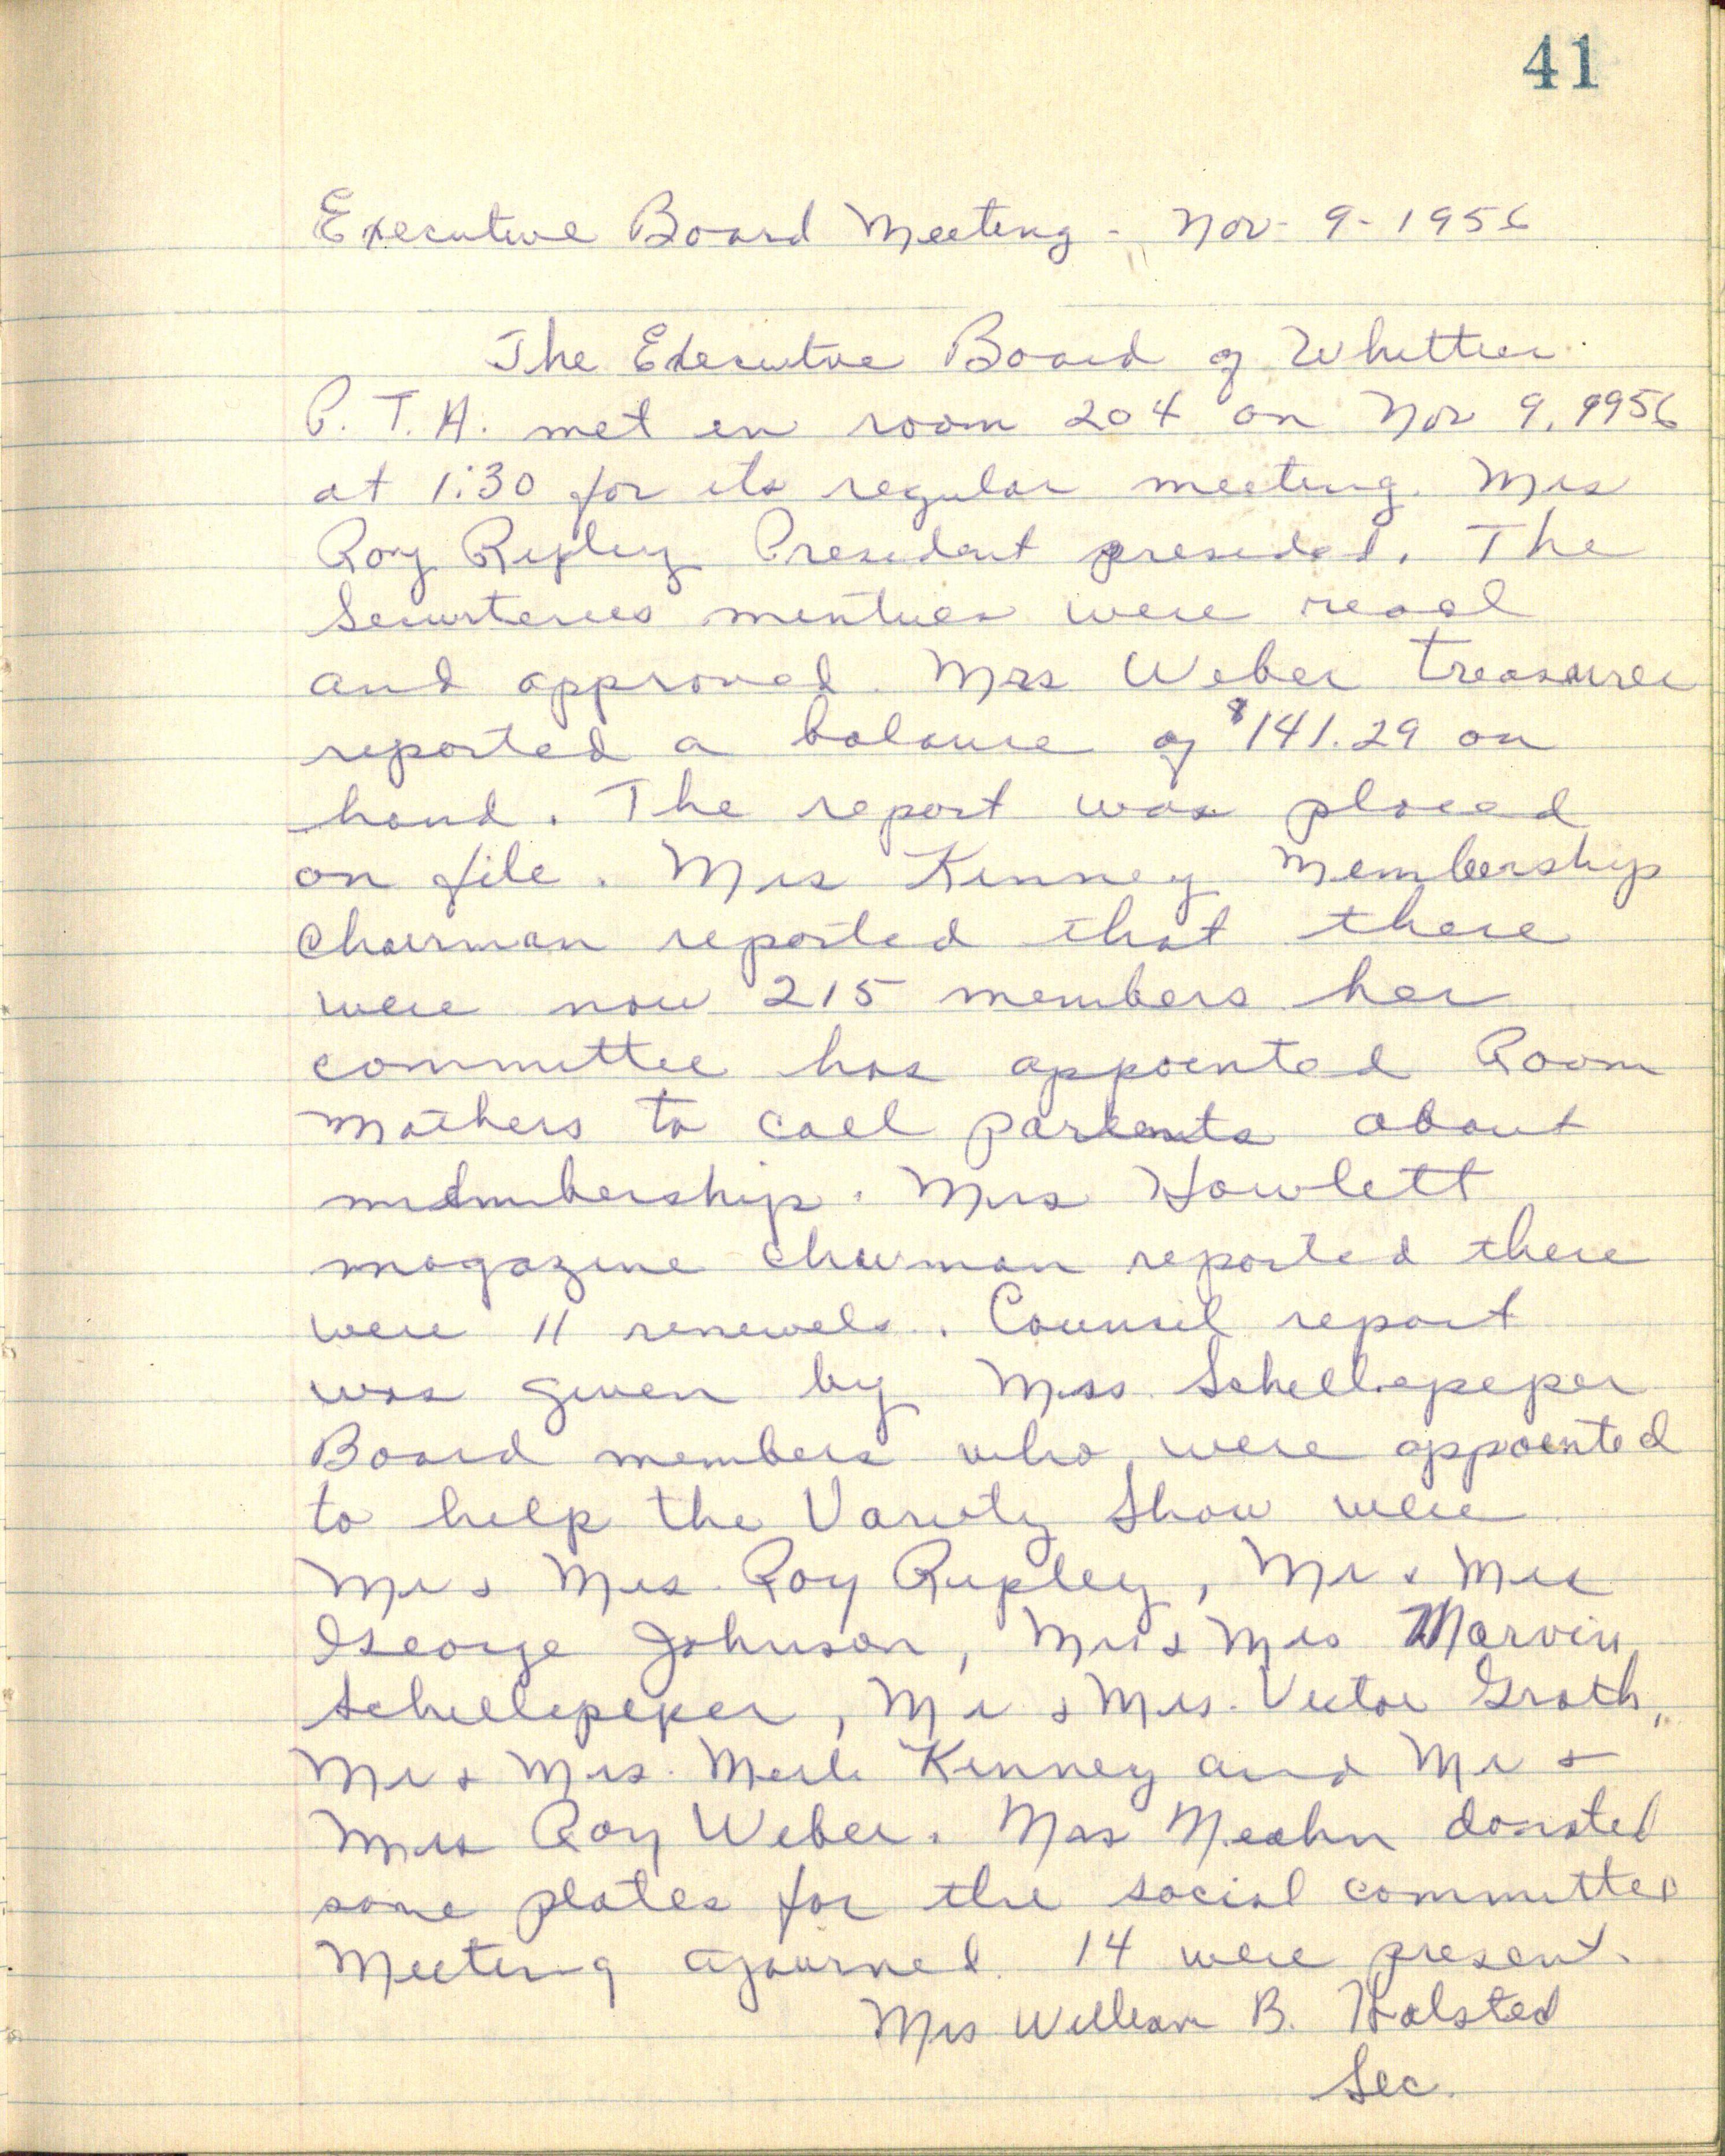 41
Executive Board Meeting - Nov - 9 - 1956
The Executive Board of Whittier
P. T. A. met in room 204 on Nov 9, 1956
at 1:30 for its regular meeting. Mrs
Roy Ripley President presided. The
were read
and approved. Mrs Weber Treasurer
reported a balance of $141.29 on
hand. The report was placed
on file. Mrs Kenney Membership
Chairman reported that there
were now 215 members her
committee has appointed Room
Mothers to call parents about
membership. Mrs Howlett
magazine chairman reported there
were 11 renewels. Counsil report
was given by Mrs. Schellepeper
Board members who were appointed
to help the Variety Show were
Mr & Mrs. Roy Ripley, Mr & Mrs
George Johnson, Mr & Mrs Marvin
Schellepeper, Mr & Mrs. Victor Groth,
Mr & Mrs. Merle Kenney and Mr &
Mrs Roy Weber. Mrs donated
some plates for the social committee
Meeting ajourned. 14 were present.
Mrs William B. Halsted
Sec.